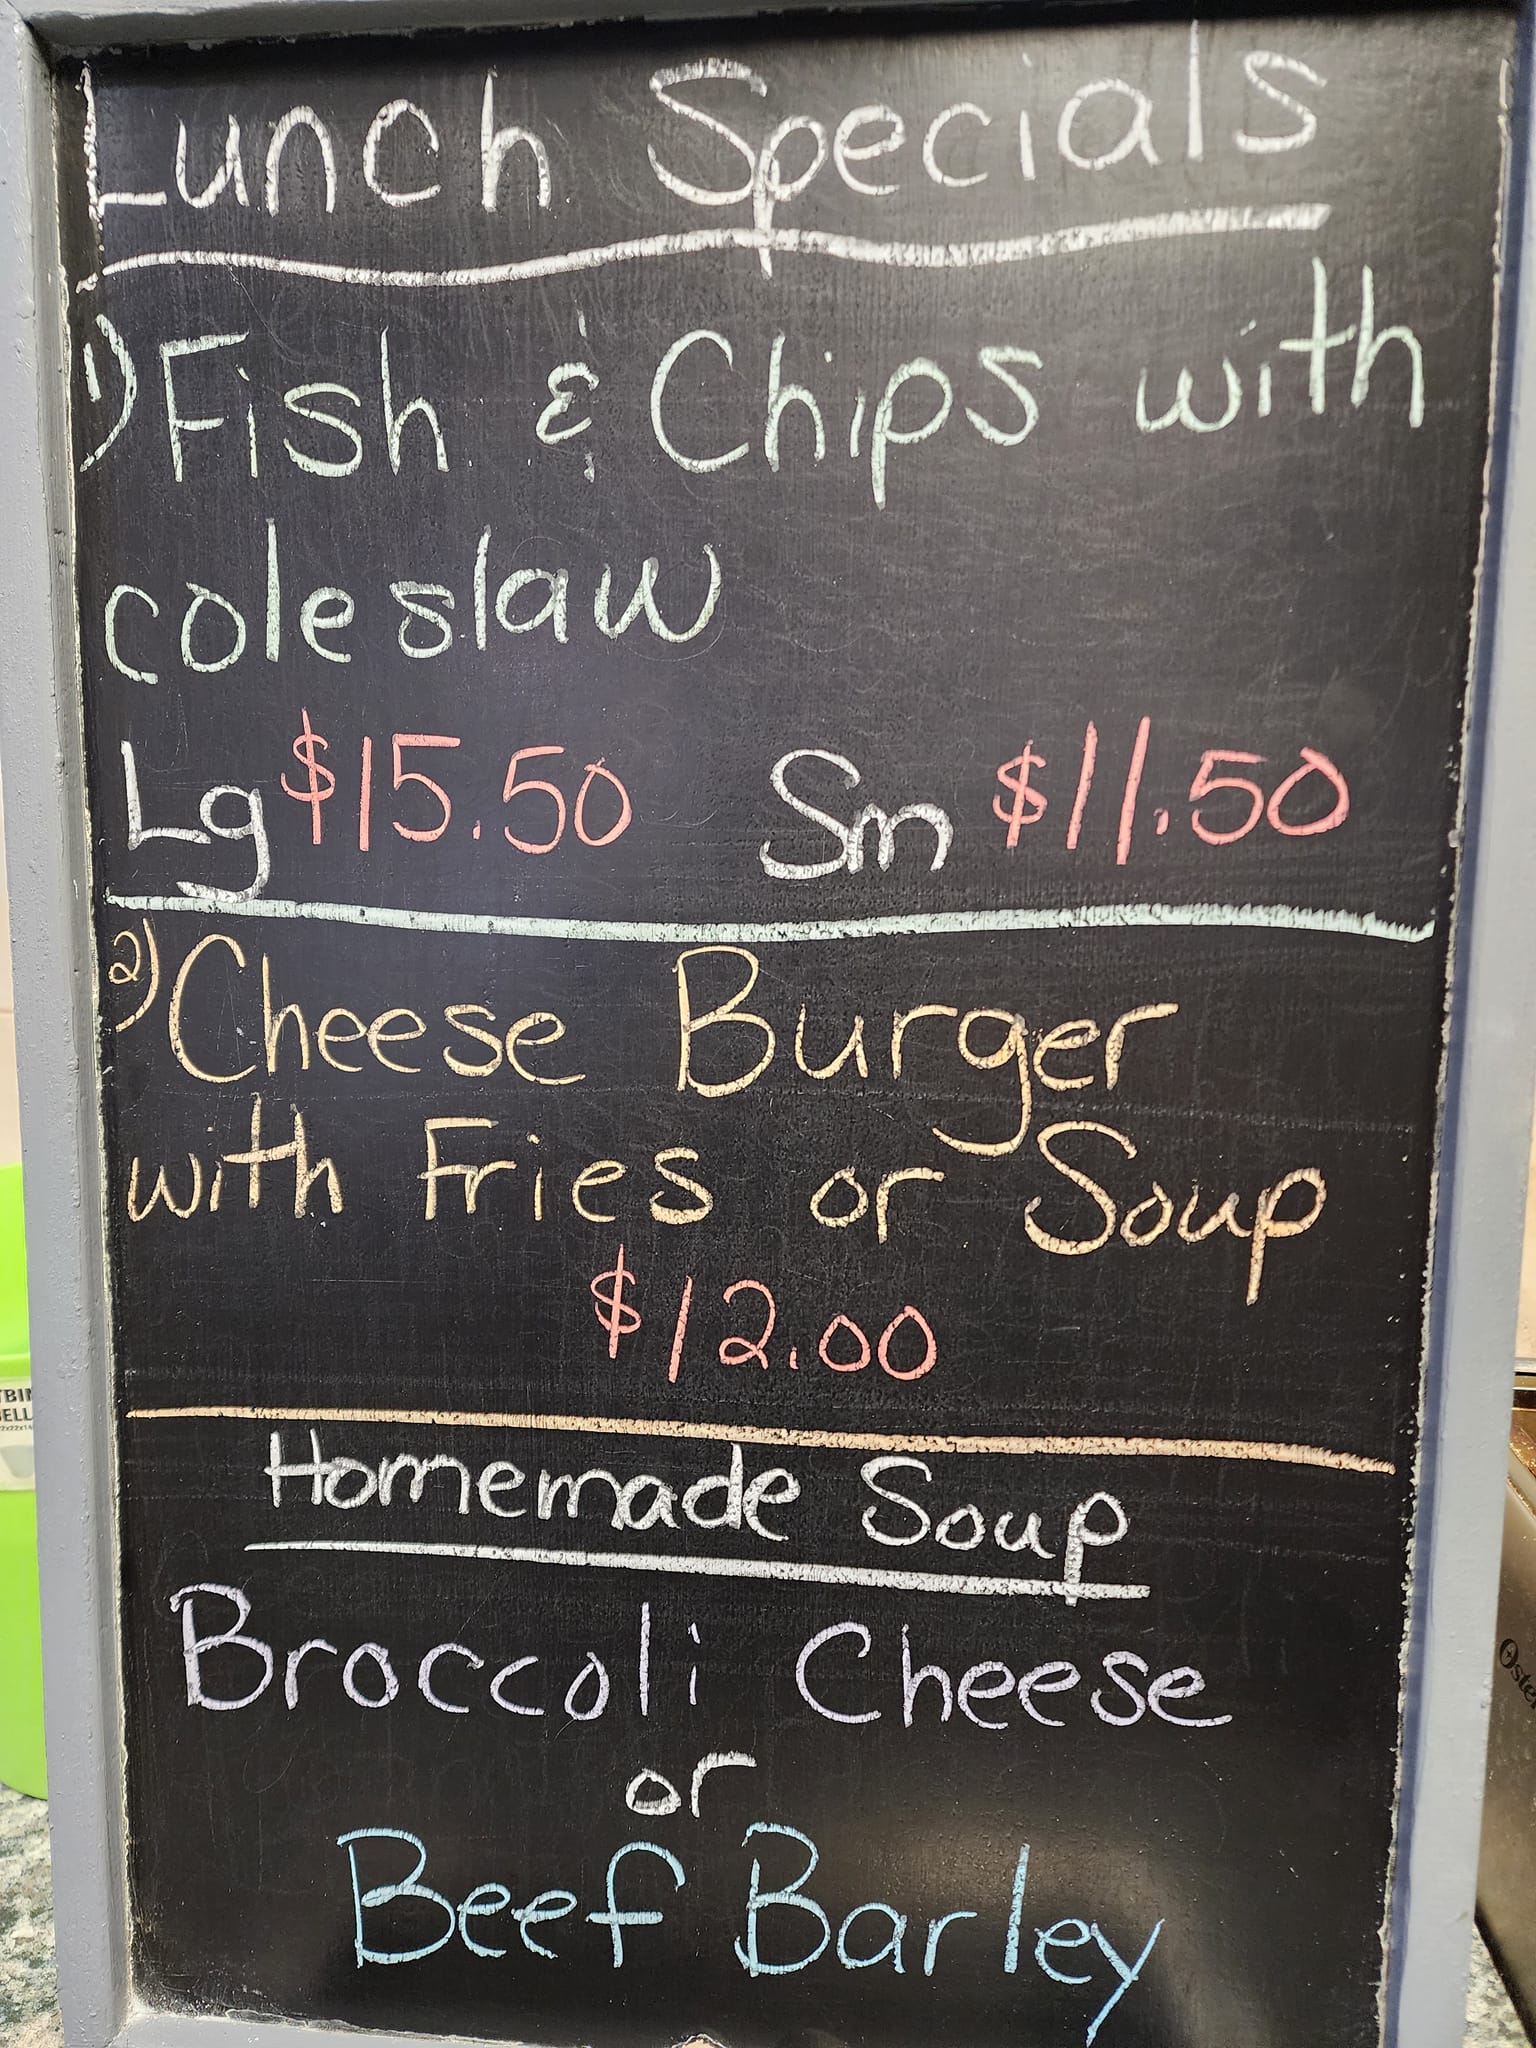 Lunch Specials
1) Fish & Chips with
coleslaw
Lg $15.50 Sm $11.50
2) Cheese Burger
with Fries or Soup
$12.00
Homemade Soup
Broccoli Cheese
or
Beef Barley